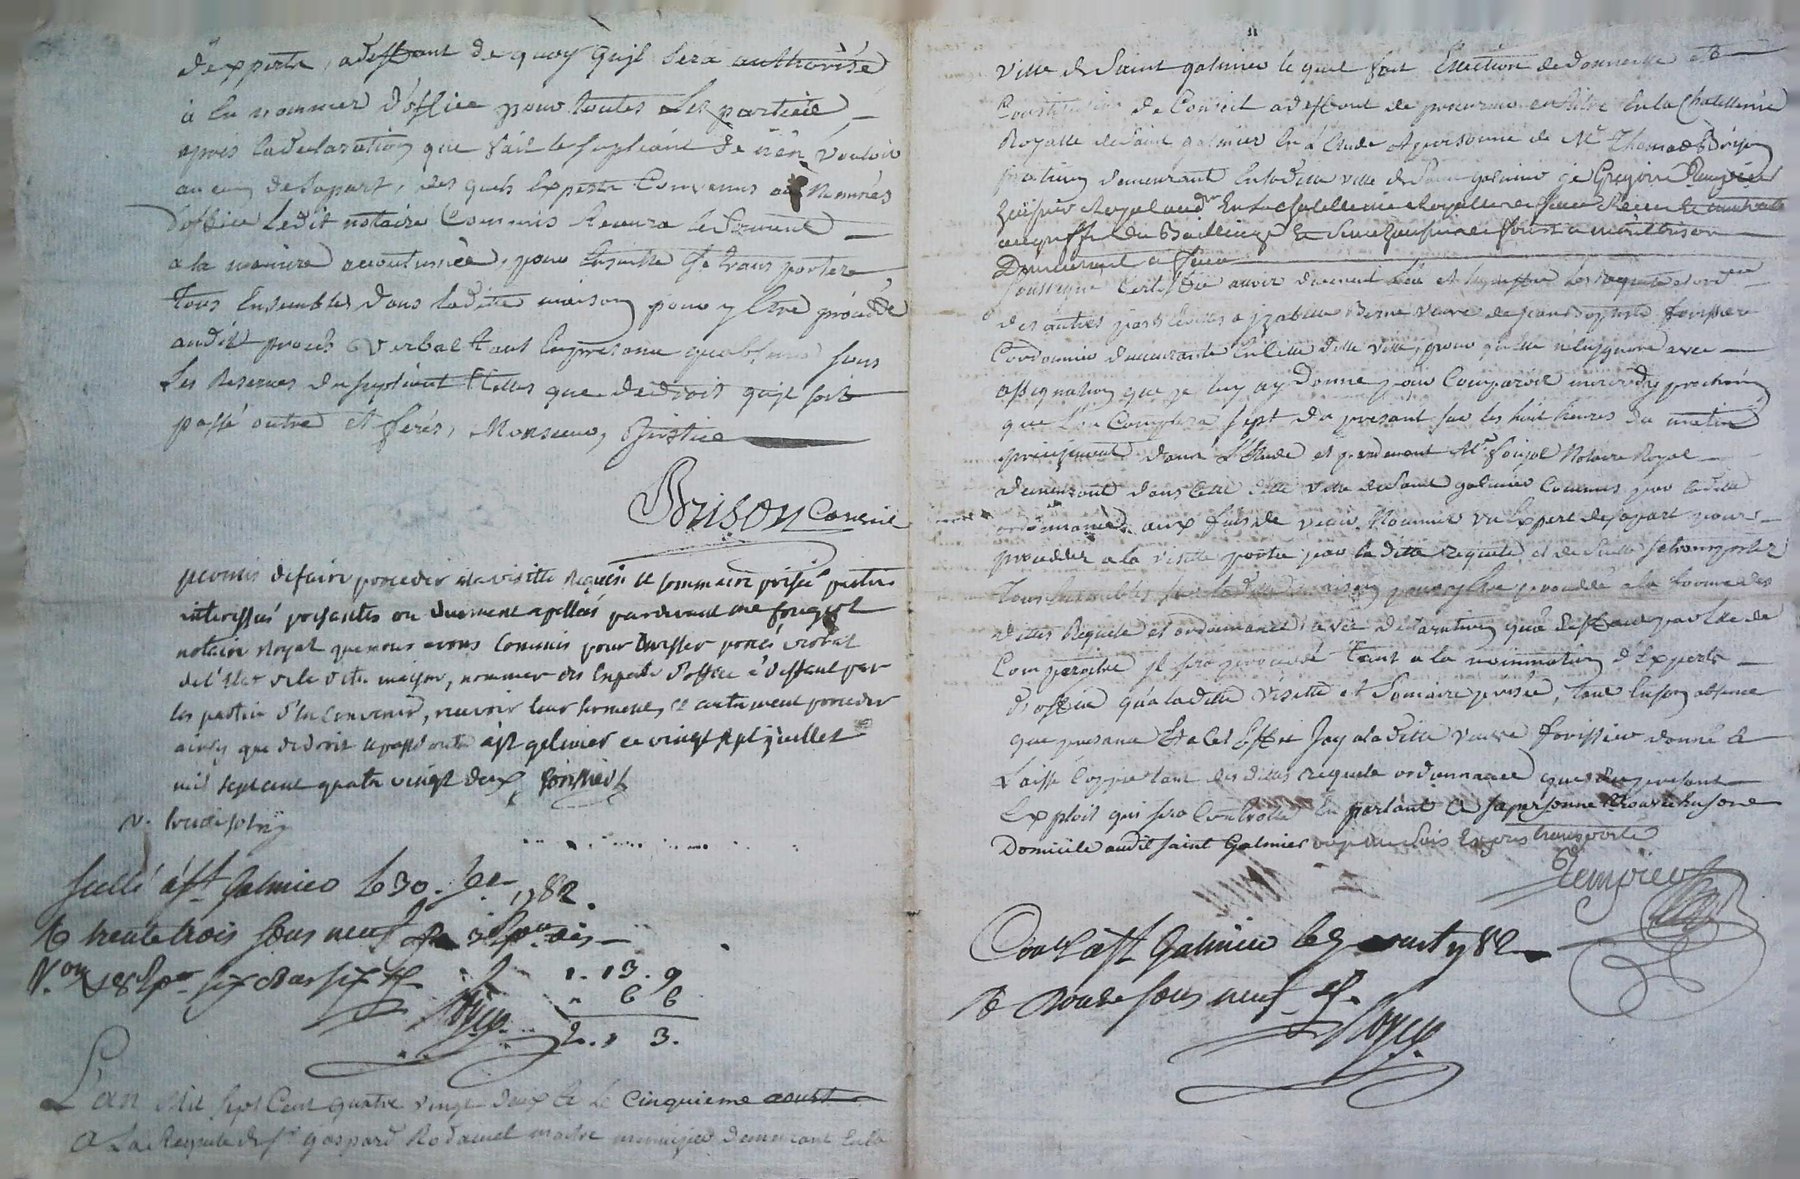 d'experts, a deffaut de quoy qu'jl sera authorisé
à en nommer d'office pour toutes les parties,
apres la declaration que fait le supliant de n'en vouloir
aucun de sa part, des quels Experts Convenus ou Nommés
d'office ledit notaire Commis Recevra le serment
a la maniere accoutumée, pour Ensuitte se transporter
tous Ensembles dans laditte maison pour y Etre procédé
audit procés verbal tant En presence qu'absence sous
les Reserves du supliant telles que de droit qu'jl soit
passé outre et ferés, Monsieur, Justice
Brison Conseil
permis de faire proceder a la visitte Requise et sommaire prisée parties
interessées presentes ou duement apellées pardevant me fougerol
notaire Royal que nous avons Commis pour dresser procés verbal
de l'etat de la ditte maison, nommer des Experts d'office à deffaut par
les parties d'En convenir, recevoir leur serment, et autrement proceder
ainsy que de droit a st galmier ce vingt sept juillet
mil sept cent quatre vingt deux
Scellé à st Galmier le 30. 1782.
R trente trois sous neuf
1. 13. 9
6 6
2. . 3.
L'an Mil sept Cent quatre vingt deux Et le Cinquieme aoust
A La Requete de sr gaspard Rodamel maitre menuisier demeurant En la
Ville de Saint galmier le quel fait Election de domicille Et
Constitution de Conseil a deffaut de procureur en titre En la Chatellenie
Royalle de Saint galmier En l'Etude et personne de Mr Thomas Brison
praticien demeurant En laditte ville de Saint galmier je Gregoire Rempier
huissier Royal En la Chatellenie Royalle
au greffe du Bailliage
Demeurant a
Soussigné Certiffie avoir duement Leu et signiffié les requete et ord.ce
des autres parts Ecrittes a jzabelle Berne veuve de jean Baptiste forissier
Cordonnier demeurante En cette ditte ville, pour qu'elle n'En jgnore avec
assignation que je luy ay Donné pour Comparoir mercredy prochain
que l'on Comptera sept du present sur les huit heures du matin
precisement dans L'Etude et pardevant Mr Notaire Royal
demeurant dans Cette ditte ville de Saint galmier Commis par laditte
ordonnance aux fins de Nommer un Expert de sa part pour
proceder a la visitte portée par la ditte requete et de suitte se transporter
tous Ensembles dans la ditte maison pour y Etre procedé a la forme des
dittes Requete et ordonnance avec declaration qu'a deffaut par Elle de
Comparoitre jl sera procedé tant a la nomination d'Experts
d'office qu'a laditte visitte et Somaire prisée, tant En son absence
que presence Et a Cet Effet Jay a la ditte veuve forissier donné et
Laissé Coppie tant des dittes requete ordonnance que du present
Exploit qui sera Controllé En parlant a sa personne trouvée En son
Domicile audit Saint Galmier
Rempier
Con.lé à st Galmier le 5 aoust 1782
R sous neuf